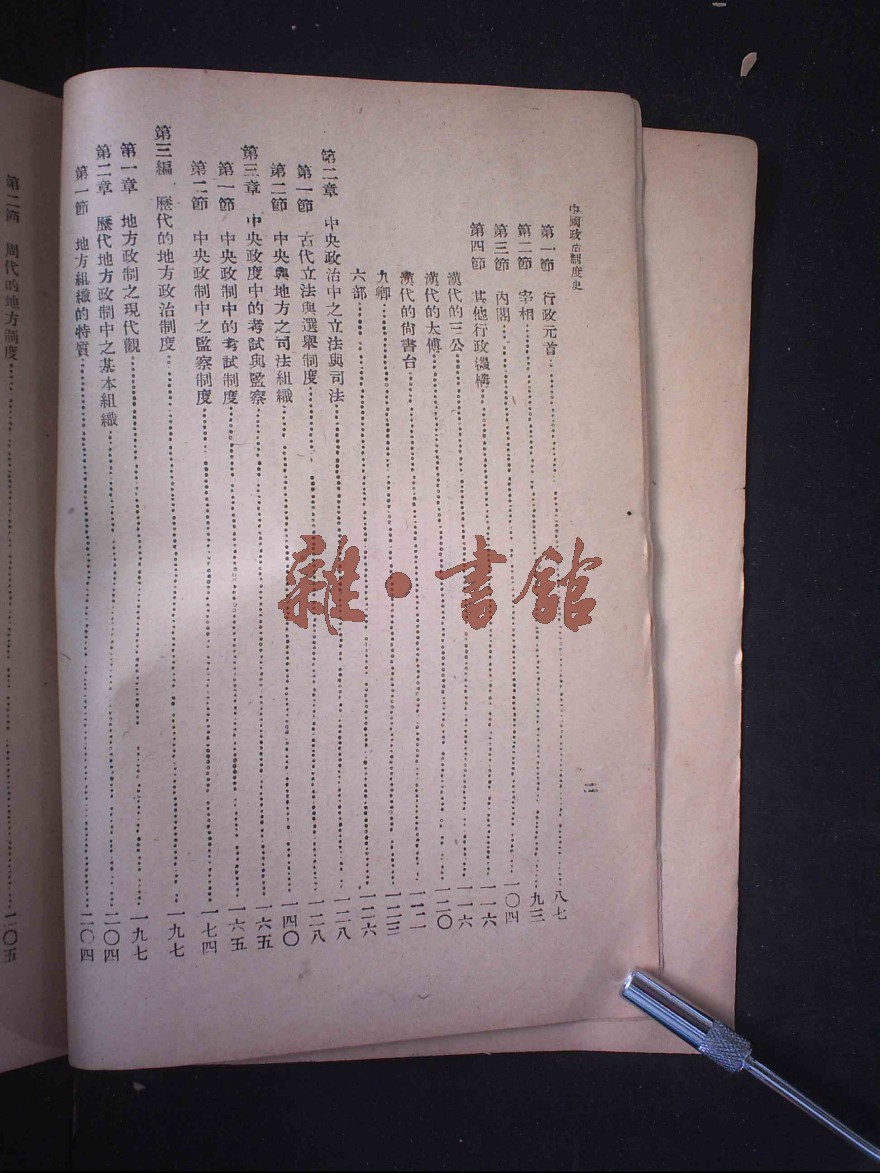 中國政治制度史
二
第一節 行政元首 八七
第二節 宰相 九三
第三節 內閣 一〇四
第四節 其他行政機構 一一六
漢代的三公 一一六
漢代的太傅 一二〇
漢代的尙書台 一二一
九卿 一二三
六部 一二六
第二章 中央政治中之立法與司法 一二八
第一節 古代立法與選舉制度 一二八
第二節 中央與地方之司法組織 一四〇
第三章 中央政度中的考試與監察 一六五
第一節 中央政制中的考試制度 一六五
第二節 中央政制中之監察制度 一七四
第三編 歷代的地方政治制度 一九七
第一章 地方政制之現代觀 一九七
第二章 歷代地方政制中之基本組織 二〇四
第一節 地方組織的特質 二〇四
第二節 周代的地方制度 二〇五
雜·書館